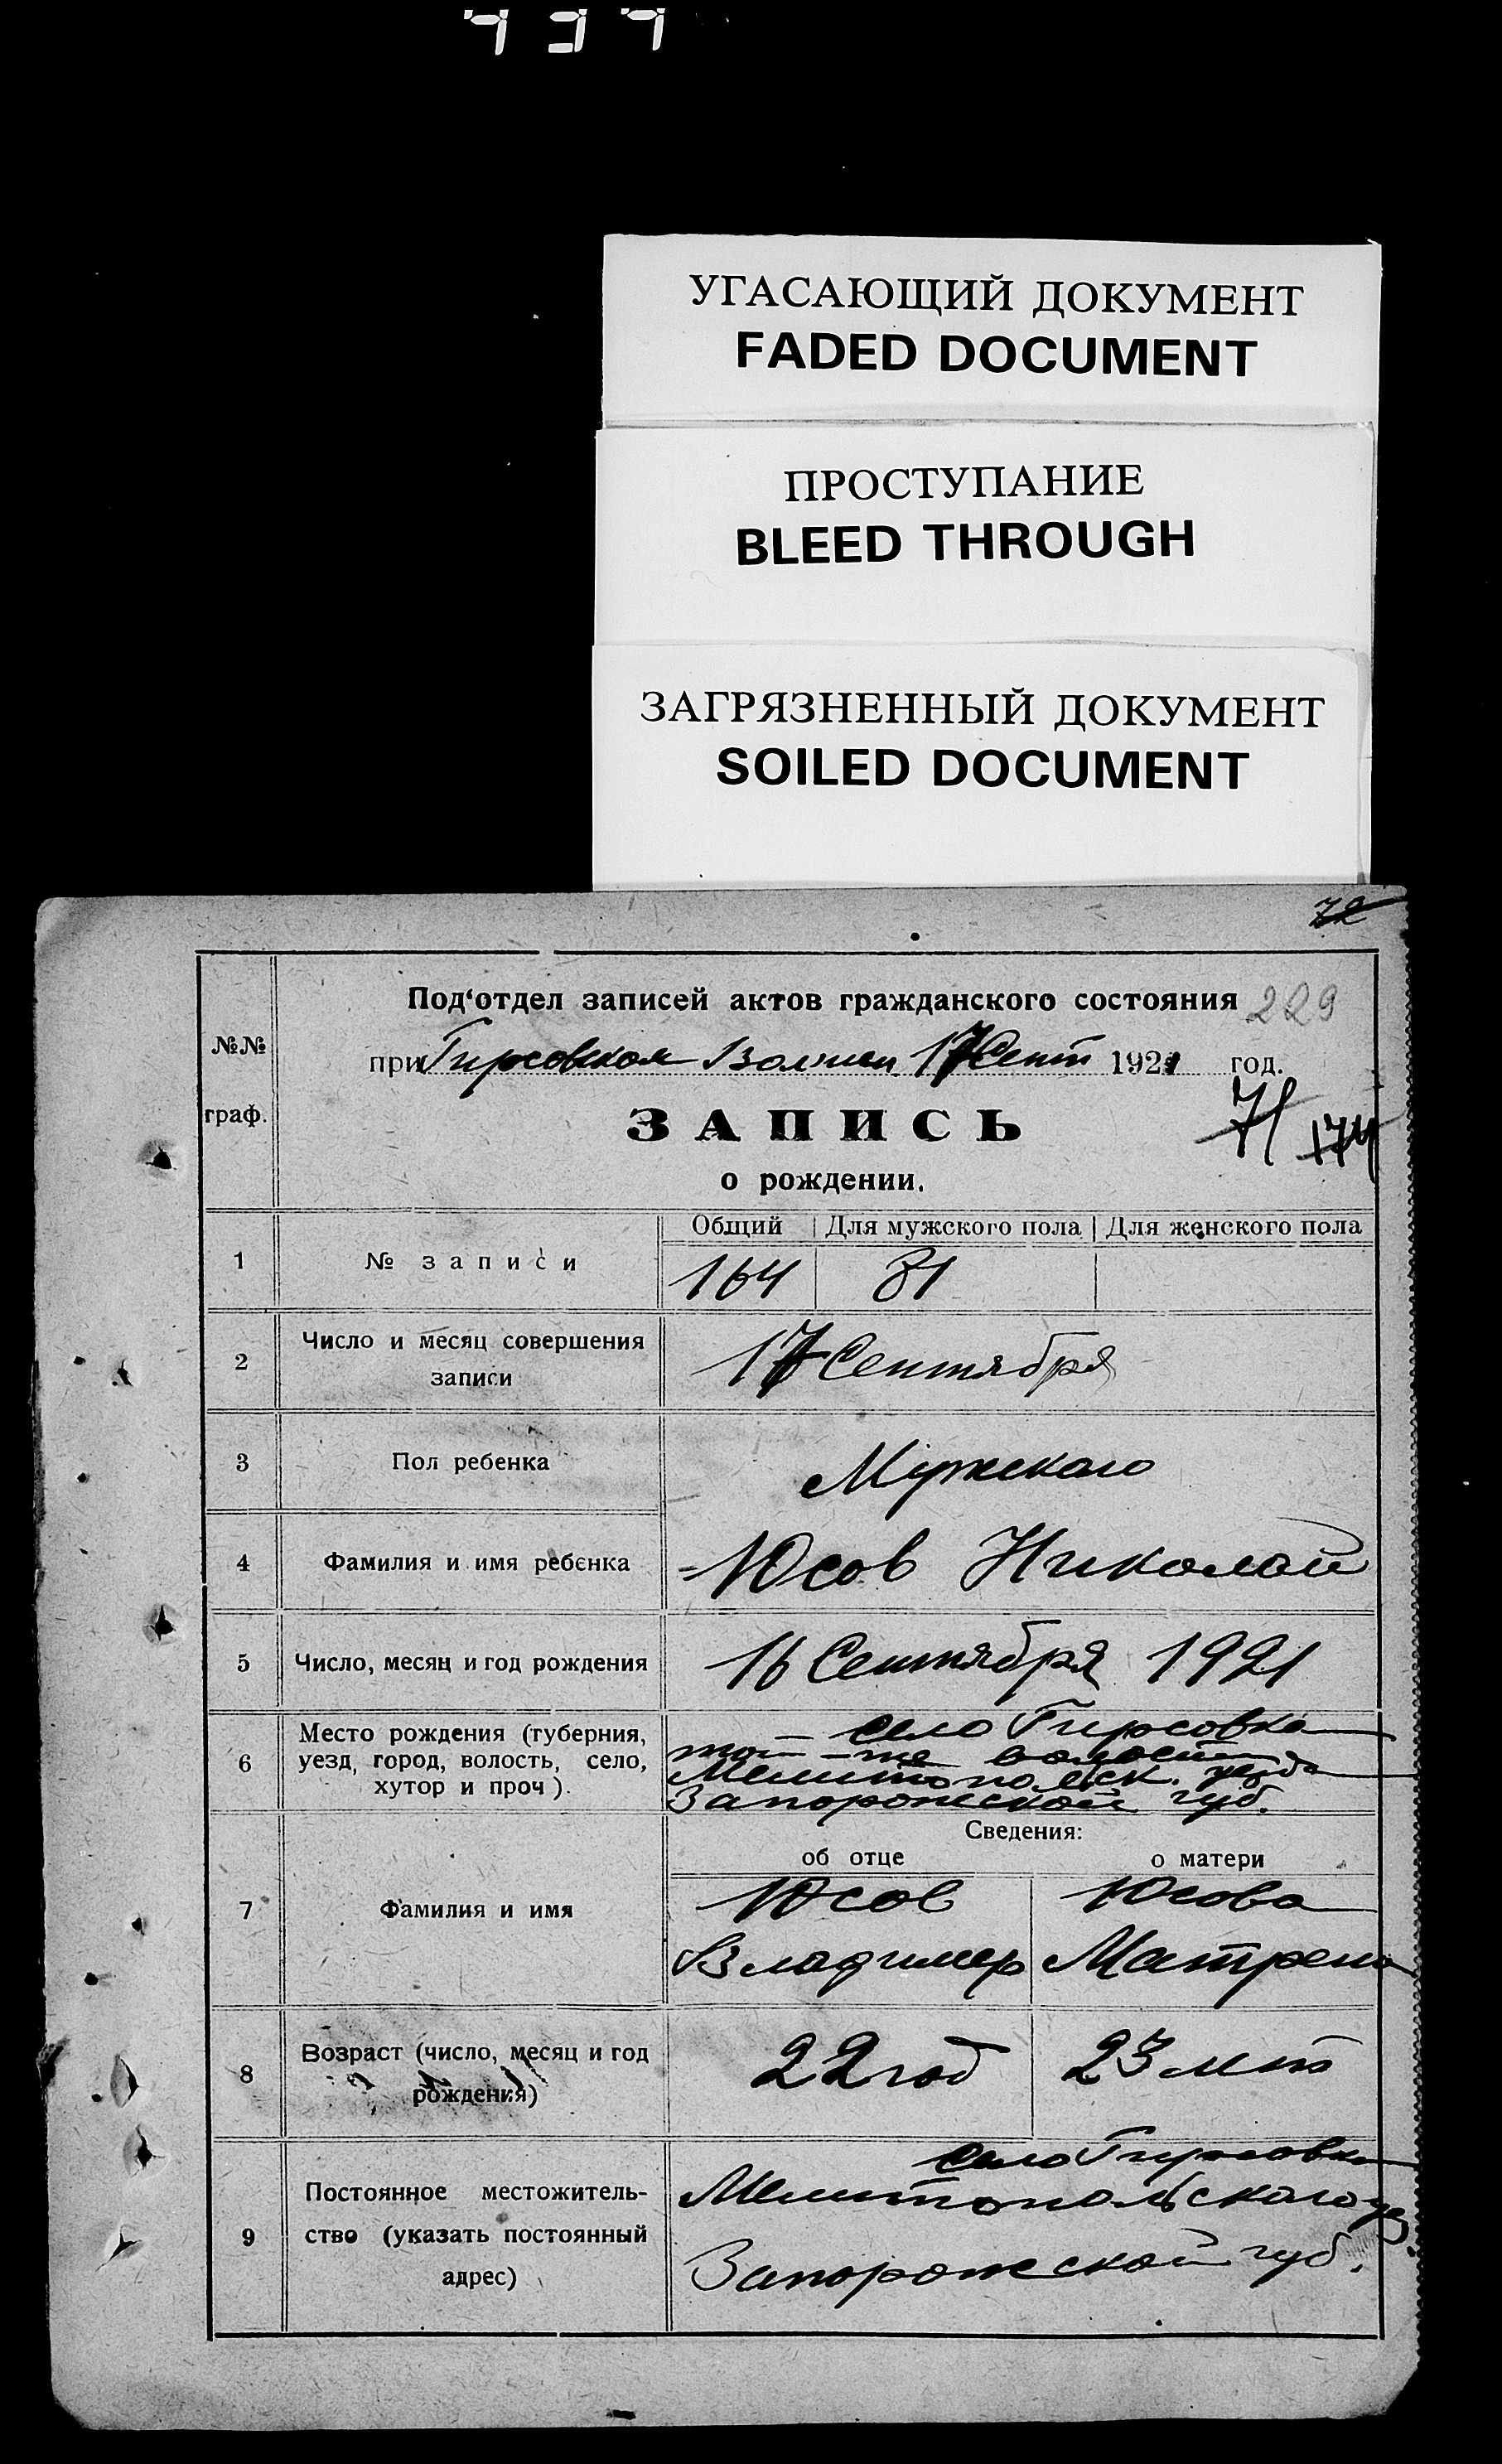 УГАСАЮЩИЙ ДОКУМЕНТ
FADED DOCUMENT
ПРОСТУПАНИЕ
BLEED THROUGH
ЗАГРЯЗНЕННЫЙ ДОКУМЕНТ
SOILED DOCUMENT
72
№№ граф.
Под'отдел записей актов гражданского состояния 229
при Гирсовском Вол 17 Сент 1921 год.
71 174
ЗАПИСЬ
о рождении.
Общий Для мужского пола Для женского пола
1 № записи 164 81
2 Число и месяц совершения записи 17 Сентября
3 Пол ребенка Мужского
4 Фамилия и имя ребенка Юсов Николай
5 Число, месяц и год рождения 16 Сентября 1921
6 Место рождения (губерния, уезд, город, волость, село, хутор и проч).
село Гирсовка
той-же волости
Мелитопольск. уезда
Запорожской губ.
Сведения:
об отце о матери
7 Фамилия и имя
Юсов Юсова
Владимер Матрена
8 Возраст (число, месяц и год рождения) 22 год 23 лет
9 Постоянное местожитель-
ство (указать постоянный
адрес)
село Гирсовка
Мелитопольского уез.
Запорожской губ.